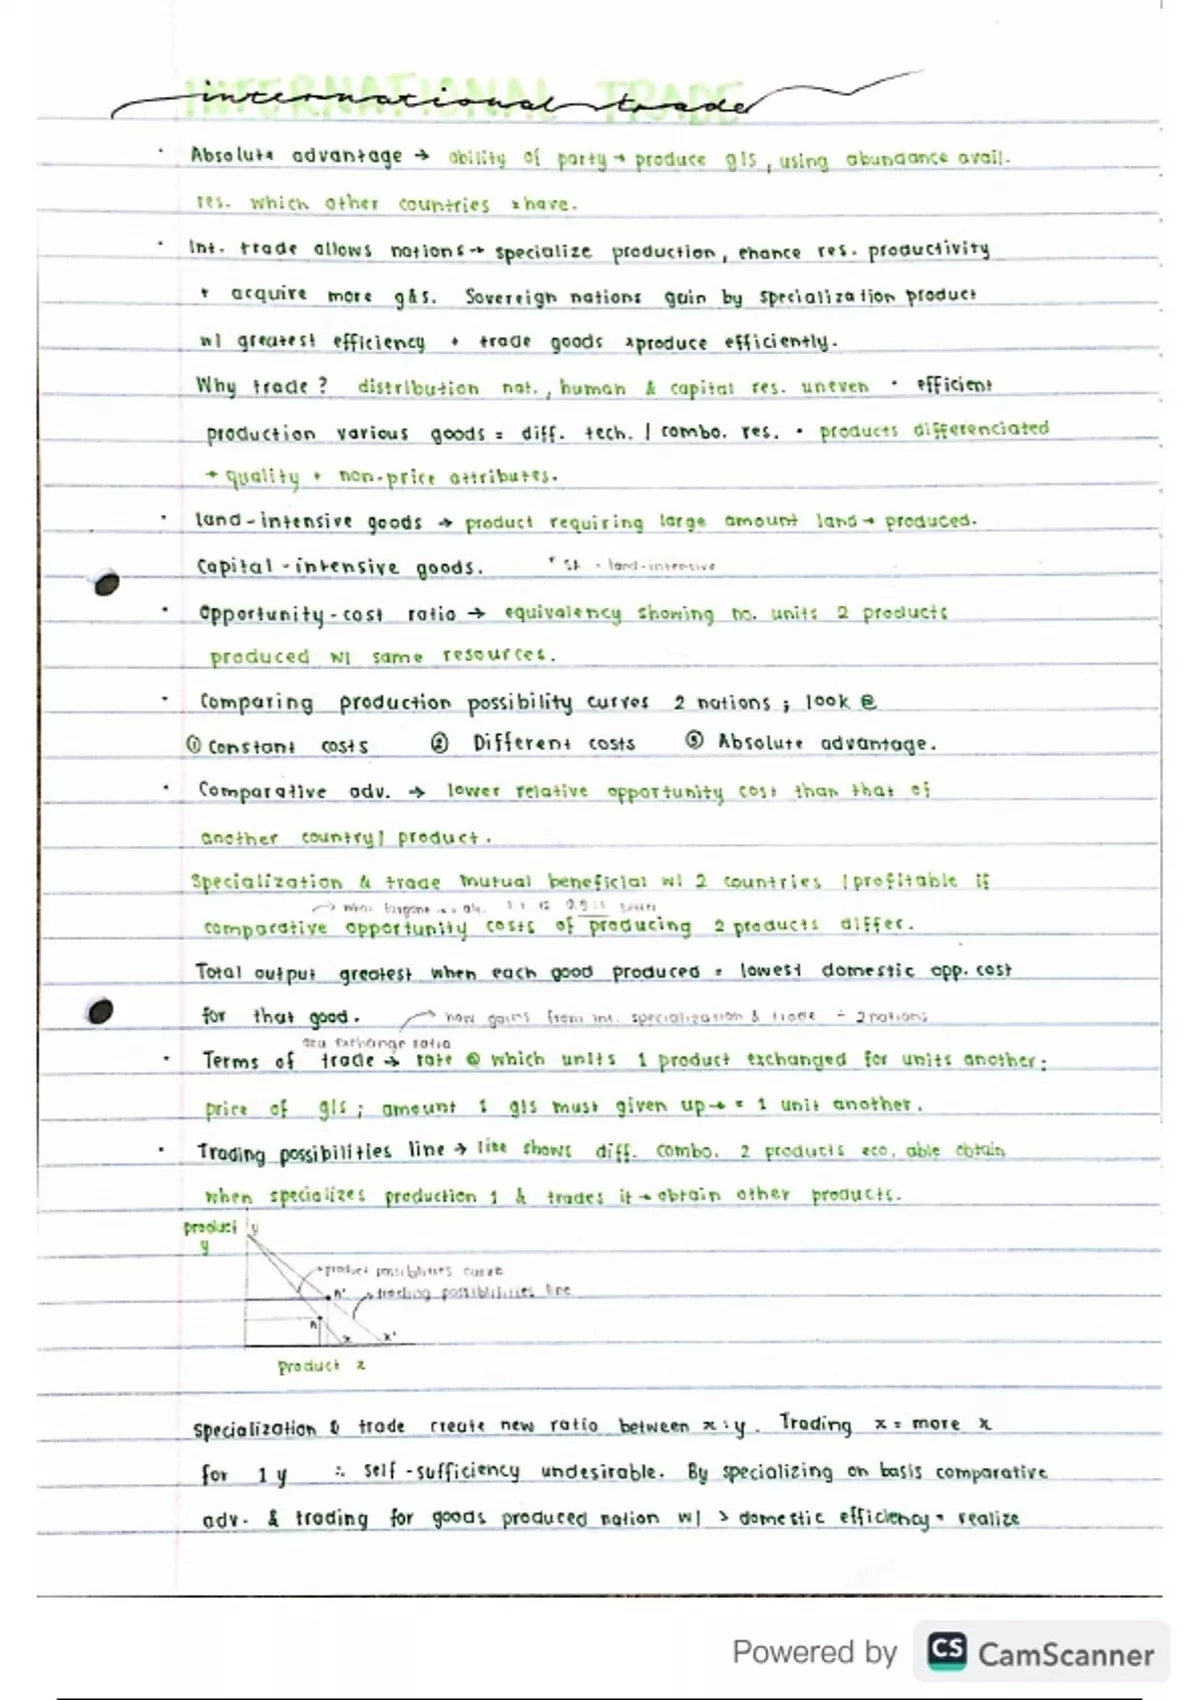 INTERNATIONAL TRADE
international trade
· Absolute advantage → ability of party → produce g/s, using abundance avail.
res. which other countries x have.
· Int. trade allows nations → specialize production, enance res. productivity
+ acquire more g&s. Sovereign nations gain by specialization product
w/ greatest efficiency + trade goods x produce efficiently.
Why trade? distribution nat., human & capital res. uneven · efficient
production various goods = diff. tech. / combo. res. · products differenciated
→ quality + non-price attributes.
· land-intensive goods → product requiring large amount land → produced.
Capital-intensive goods. * SA - land-intensive
· Opportunity-cost ratio → equivalency showing no. units 2 products
produced w/ same resources.
· Comparing production possibility curves 2 nations ; look @
① Constant costs ② Different costs ③ Absolute advantage.
· Comparative adv. → lower relative opportunity cost than that of
another country/product.
Specialization & trade mutual beneficial w/ 2 countries / profitable if
comparative opportunity costs of producing 2 products differ.
Total output greatest when each good produced = lowest domestic opp. cost
for that good. → how gains from int. specialization & trade ÷ 2 nations
aka exchange ratio
· Terms of trade → rate @ which units 1 product exchanged for units another:
price of g/s ; amount 1 g/s must given up → = 1 unit another.
· Trading possibilities line → line shows diff. combo. 2 products eco. able obtain
when specializes production 1 & trades it → obtain other products.
product y
y
→ product possibilities curve
A' → trading possibilities line
A x x'
Product x
Specialization & trade create new ratio between x:y. Trading x = more x
for 1 y ∴ self-sufficiency undesirable. By specializing on basis comparative
adv. & trading for goods produced nation w/ > domestic efficiency · realize
Powered by CS CamScanner